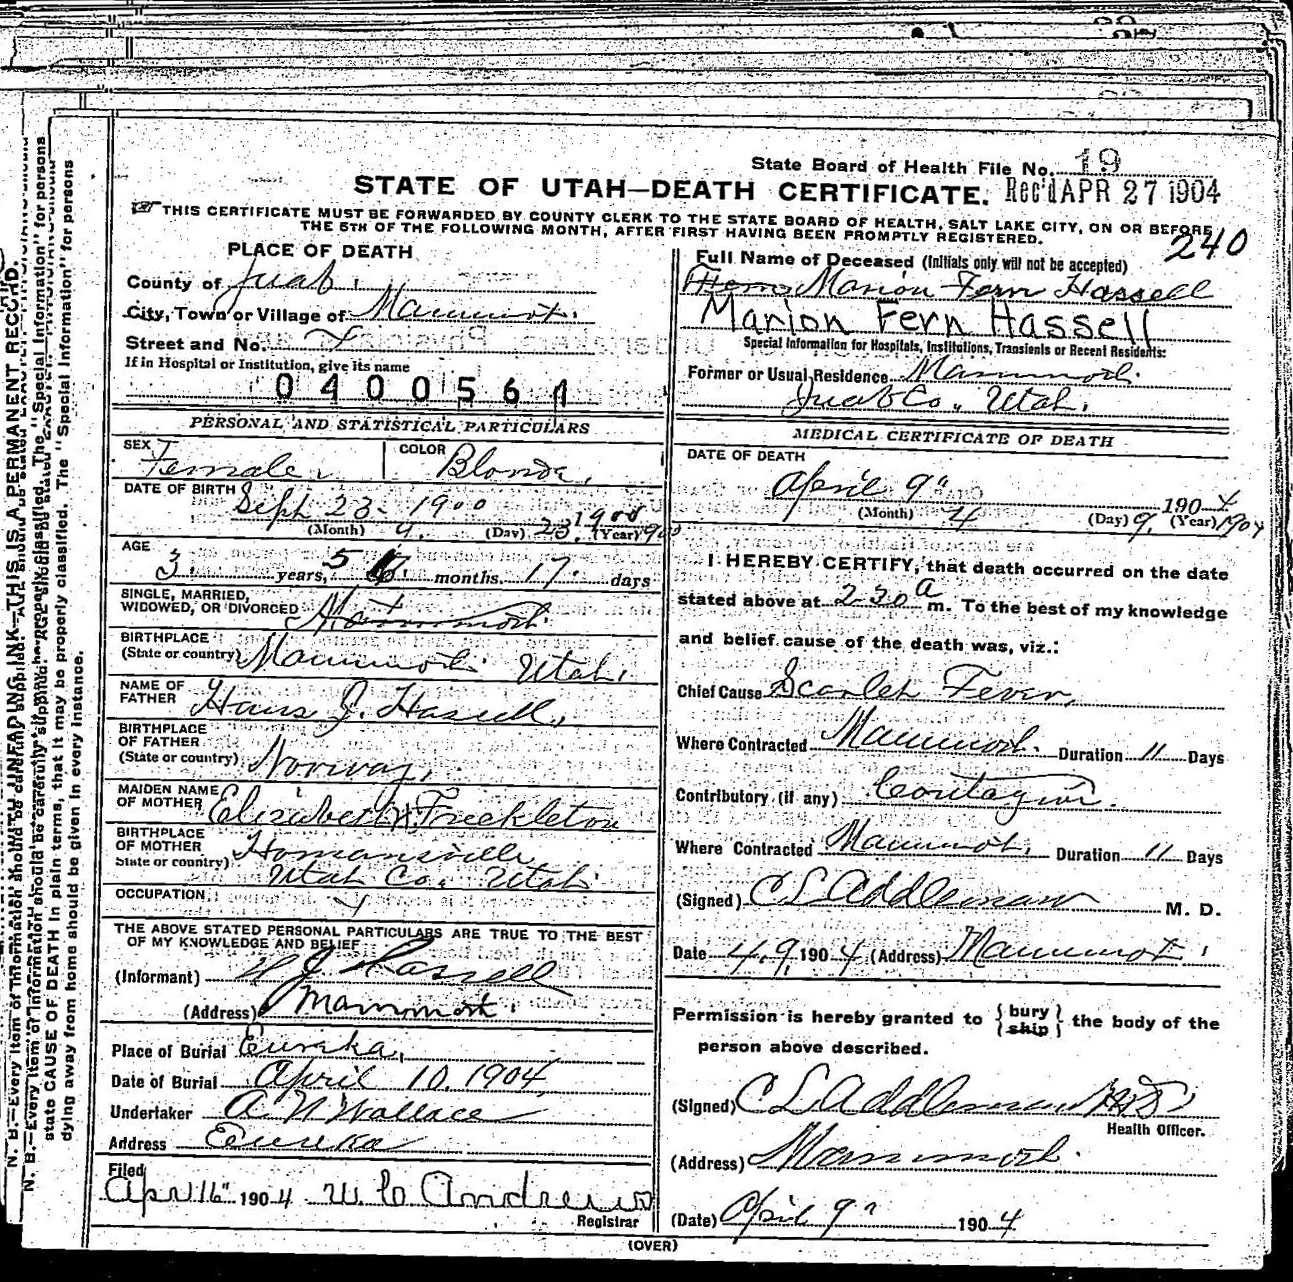 State Board of Health File No. 19
STATE OF UTAH—DEATH CERTIFICATE. Rec'd APR 27 1904
THIS CERTIFICATE MUST BE FORWARDED BY COUNTY CLERK TO THE STATE BOARD OF HEALTH, SALT LAKE CITY, ON OR BEFORE
THE 5TH OF THE FOLLOWING MONTH, AFTER FIRST HAVING BEEN PROMPTLY REGISTERED.
240
PLACE OF DEATH
County of Juab.
City, Town or Village of Mammoth.
Street and No.
If in Hospital or Institution, give its name
0400561
PERSONAL AND STATISTICAL PARTICULARS
SEX Female. COLOR Blonde.
DATE OF BIRTH Sept 23. 1900
(Month) 9. (Day) 23. (Year) 1900
AGE
3. years, 5 months. 17. days
SINGLE, MARRIED,
WIDOWED, OR DIVORCED
BIRTHPLACE
(State or country) Mammoth Utah.
NAME OF
FATHER Hans J. Hassell.
BIRTHPLACE
OF FATHER
(State or country) Norway.
MAIDEN NAME
OF MOTHER Elizabeth Freckleton
BIRTHPLACE
OF MOTHER
State or country) Homansville,
Utah Co. Utah.
OCCUPATION
THE ABOVE STATED PERSONAL PARTICULARS ARE TRUE TO THE BEST
OF MY KNOWLEDGE AND BELIEF
(Informant) H J Hassell
(Address) Mammoth.
Place of Burial Eureka,
Date of Burial April 10. 1904
Undertaker A. N Wallace
Address Eureka
Filed
Apr 16" 1904 W. C Andrews
Registrar
Full Name of Deceased (Initials only will not be accepted)
Marion Fern Hassell
Marion Fern Hassell
Special Information for Hospitals, Institutions, Transients or Recent Residents:
Former or Usual Residence Mammoth.
Juab Co. Utah.
MEDICAL CERTIFICATE OF DEATH
DATE OF DEATH
April 9" 1904
(Month) 4 (Day) 9. (Year) 1904
I HEREBY CERTIFY, that death occurred on the date
stated above at 2 30 a m. To the best of my knowledge
and belief cause of the death was, viz.:
Chief Cause Scarlet Fever,
Where Contracted Mammoth. Duration 11 Days
Contributory (if any) Contagion.
Where Contracted Mammoth. Duration 11 Days
(Signed) C L Addleman M. D.
Date 4. 9, 1904 (Address) Mammoth.
Permission is hereby granted to {bury ship} the body of the
person above described.
(Signed) C L Addleman
Health Officer.
(Address) Mammoth.
(Date) April 9" 1904
(OVER)
N. B.—Every item of information should be carefully supplied. AGE should be
state CAUSE OF DEATH in plain terms, that it may be properly classified. The "Special Information" for persons
dying away from home should be given in every instance.